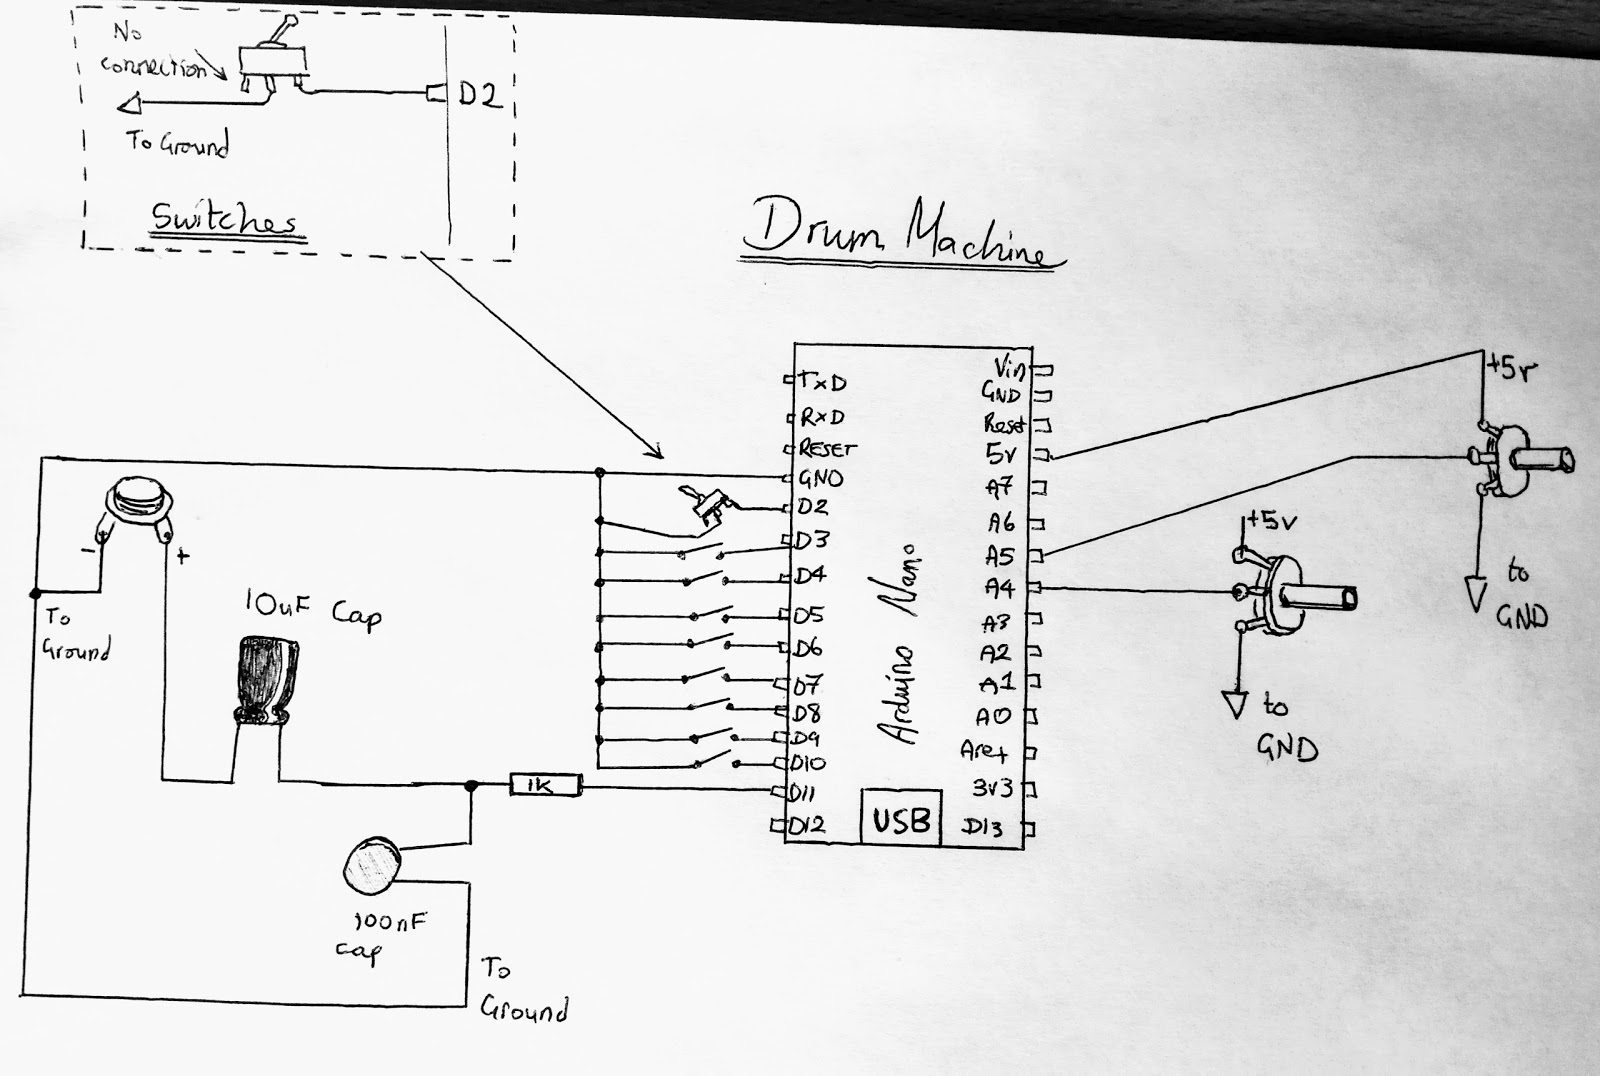 No
connection
D2
To Ground
Switches
Drum Machine
TxD
RxD
RESET
GND
D2
D3
D4
D5
D6
D7
D8
D9
D10
D11
D12
Arduino Nano
USB
Vin
GND
Reset
5v
A7
A6
A5
A4
A3
A2
A1
A0
Aref
3v3
D13
+5v
to
GND
+5v
to
GND
-
+
To
Ground
10uF Cap
1K
100nF
cap
To
Ground